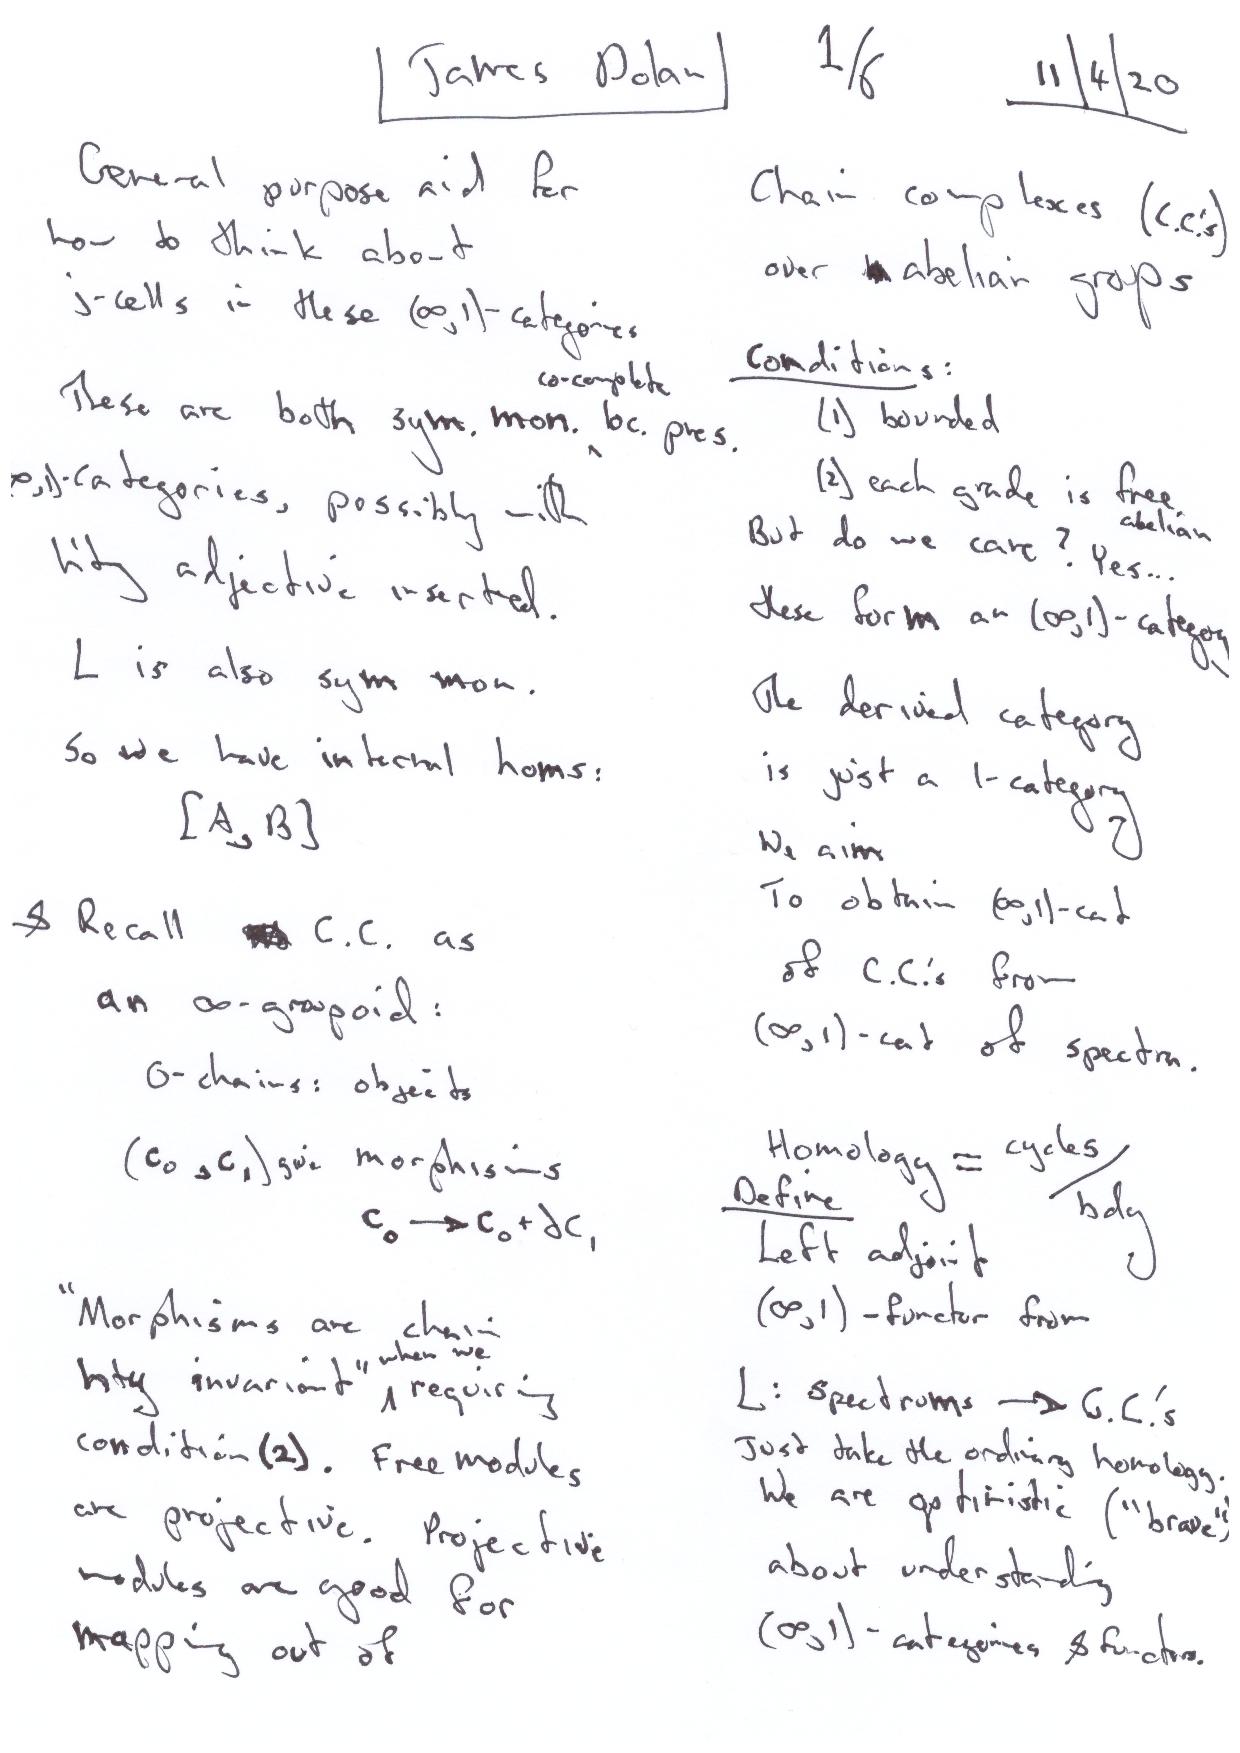 James Dolan 1/6 11/4/20
General purpose aid for
how to think about
j-cells in these (∞,1)-categories
These are both sym. mon. co-complete loc. pres.
∞,1)-categories, possibly with
htty adjective inserted.
L is also sym mon.
So we have internal homs:
[A, B]
& Recall C.C. as
an ∞-groupoid:
0-chains: objects
(c₀, c₁) give morphisms
c₀ → c₀ + ∂c₁
"Morphisms are chain
htty invariant" when we requiring
condition (2). Free modules
are projective. Projective
modules are good for
mapping out of
Chain complexes (C.C.'s)
over abelian groups
Conditions:
(1) bounded
(2) each grade is free
abelian
But do we care? Yes...
these form an (∞,1)-category
The derived category
is just a 1-category
We aim
To obtain (∞,1)-cat
of C.C.'s from
(∞,1)-cat of spectra.
Homology = cycles/bdy
Define
Left adjoint
(∞,1)-functor from
L: spectrums → C.C.'s
Just take the ordinary homology.
We are optimistic ("brave")
about understanding
(∞,1)-categories & functors.